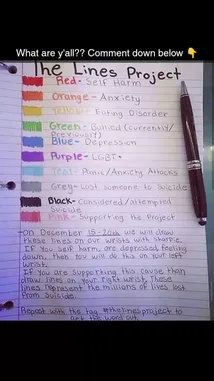 What are y'all?? Comment down below 👇
The Lines Project
Red- Self Harm
Orange- Anxiety
Yellow- Eating Disorder
Green- Bullied (currently/
Previously)
Blue- Depression
Purple- LGBT+
Teal- Panic/Anxiety Attacks
Grey- Lost someone to Suicide
Black- Considered/attempted
Suicide
Pink- Supporting the Project
-On December 15-20th we will draw
these lines on our wrists with sharpie.
If you self harm, are depressed, feeling
down, than you will do this on your left
wrist.
If you are supporting this cause than
draw lines on your right wrist. These
lines represent the millions of lives lost
from Suicide.
Repost with the tag #thelinesproject to
get the word out.